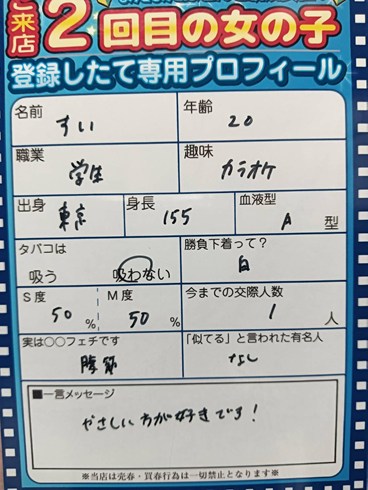 ご来店
2回目の女の子
登録したて専用プロフィール
名前
すい
年齢
20
職業
学生
趣味
カラオケ
出身
東京
身長
155
血液型
A 型
タバコは
吸う 吸わない
勝負下着って?
白
S度
50 %
M度
50 %
今までの交際人数
1 人
実は〇〇フェチです
腹筋
「似てる」と言われた有名人
なし
■一言メッセージ
やさしい方が好きです!
※当店は売春・買春行為は一切禁止となります※